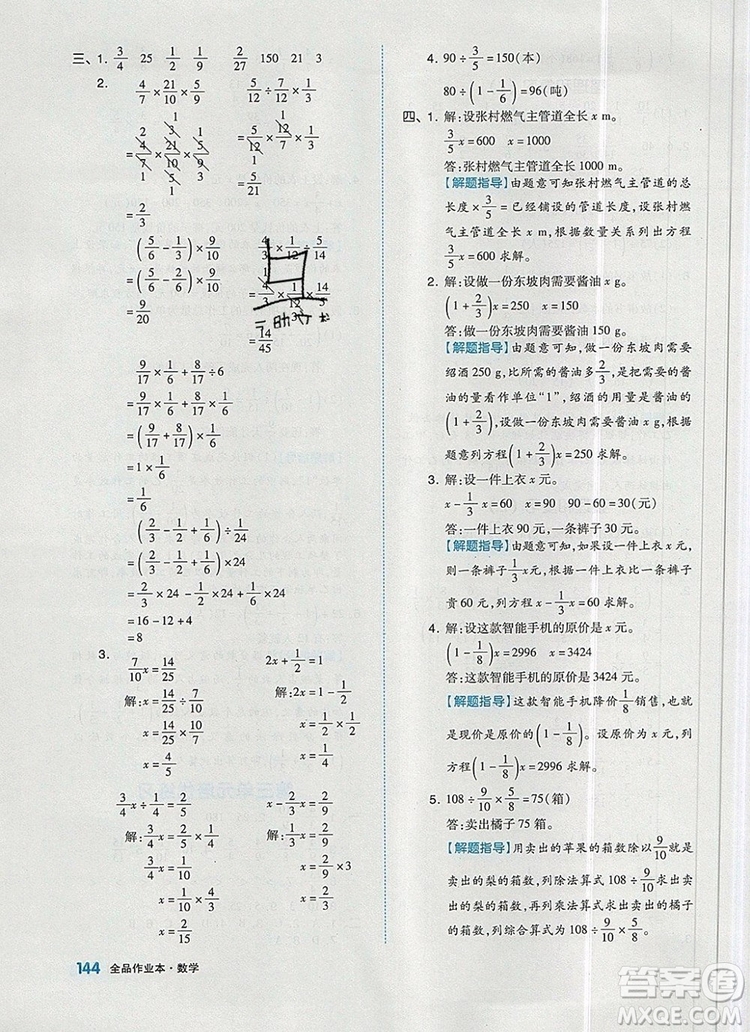 三、1. 3/4 25 1/2 9/2 2/27 150 21 3
2. 4/7×21/10×5/9 5/12÷7/12×3/10
=4/7×21/10×5/9 =5/12×12/7×3/10
=2/3 =5/21
(5/6-1/3)×9/10 4/3×1/12÷5/14
=(5/6-2/6)×9/10 =4/3×1/12×14/5
=9/20 =14/45
9/17×1/6+8/17÷6
=9/17×1/6+8/17×1/6
=(9/17+8/17)×1/6
=1×1/6
=1/6
(2/3-1/2+1/6)÷1/24
=(2/3-1/2+1/6)×24
=2/3×24-1/2×24+1/6×24
=16-12+4
=8
3. 7/10x=14/25 2x+1/2=1
解:x=14/25÷7/10 解:2x=1-1/2
x=14/25×10/7 x=1/2×1/2
x=4/5 x=1/4
3/4x÷1/4=2/5 2/3x÷1/3=9/10
解:3/4x=2/5×1/4 解:2/3x=9/10×1/3
3/4x=1/10 2/3x=3/10
x=1/10×4/3 x=3/10×3/2
x=2/15 x=9/20
144 全品作业本·数学
4. 90÷3/5=150(本)
80÷(1-1/6)=96(吨)
四、1. 解:设张村燃气主管道全长x m。
3/5x=600 x=1000
答:张村燃气主管道全长1000 m。
【解题指导】由题意可知张村燃气主管道的总长度×3/5=已经铺设的管道长度,设张村燃气主管道全长x m,根据数量关系列出方程3/5x=600求解。
2. 解:设做一份东坡肉需要酱油x g。
(1+2/3)x=250 x=150
答:做一份东坡肉需要酱油150 g。
【解题指导】由题意可知,做一份东坡肉需要绍酒250 g,比所需的酱油多2/3,把所需的酱油的量看作单位“1”,绍酒的用量是酱油的(1+2/3),设做一份东坡肉需要酱油x g,根据题意列方程(1+2/3)x=250求解。
3. 解:设一件上衣x元。
x-1/3x=60 x=90 90-60=30(元)
答:一件上衣90元,一条裤子30元。
【解题指导】由题意可知,如果设一件上衣x元,则一条裤子1/3x元,根据一件上衣比一条裤子贵60元,列方程x-1/3x=60求解。
4. 解:设这款智能手机的原价是x元。
(1-1/8)x=2996 x=3424
答:这款智能手机的原价是3424元。
【解题指导】这款智能手机降价1/8销售,也就是现价是原价的(1-1/8),设原价是x元,列方程(1-1/8)x=2996求解。
5. 108÷9/10×5/8=75(箱)
答:卖出橘子75箱。
【解题指导】用卖出的苹果的箱数除以9/10就是卖出的梨的箱数,列除法算式108÷9/10求出卖出的梨的箱数,再列乘法算式求出卖出的橘子的箱数,列综合算式为108÷9/10×5/8。
答案圈
MXQE.COM